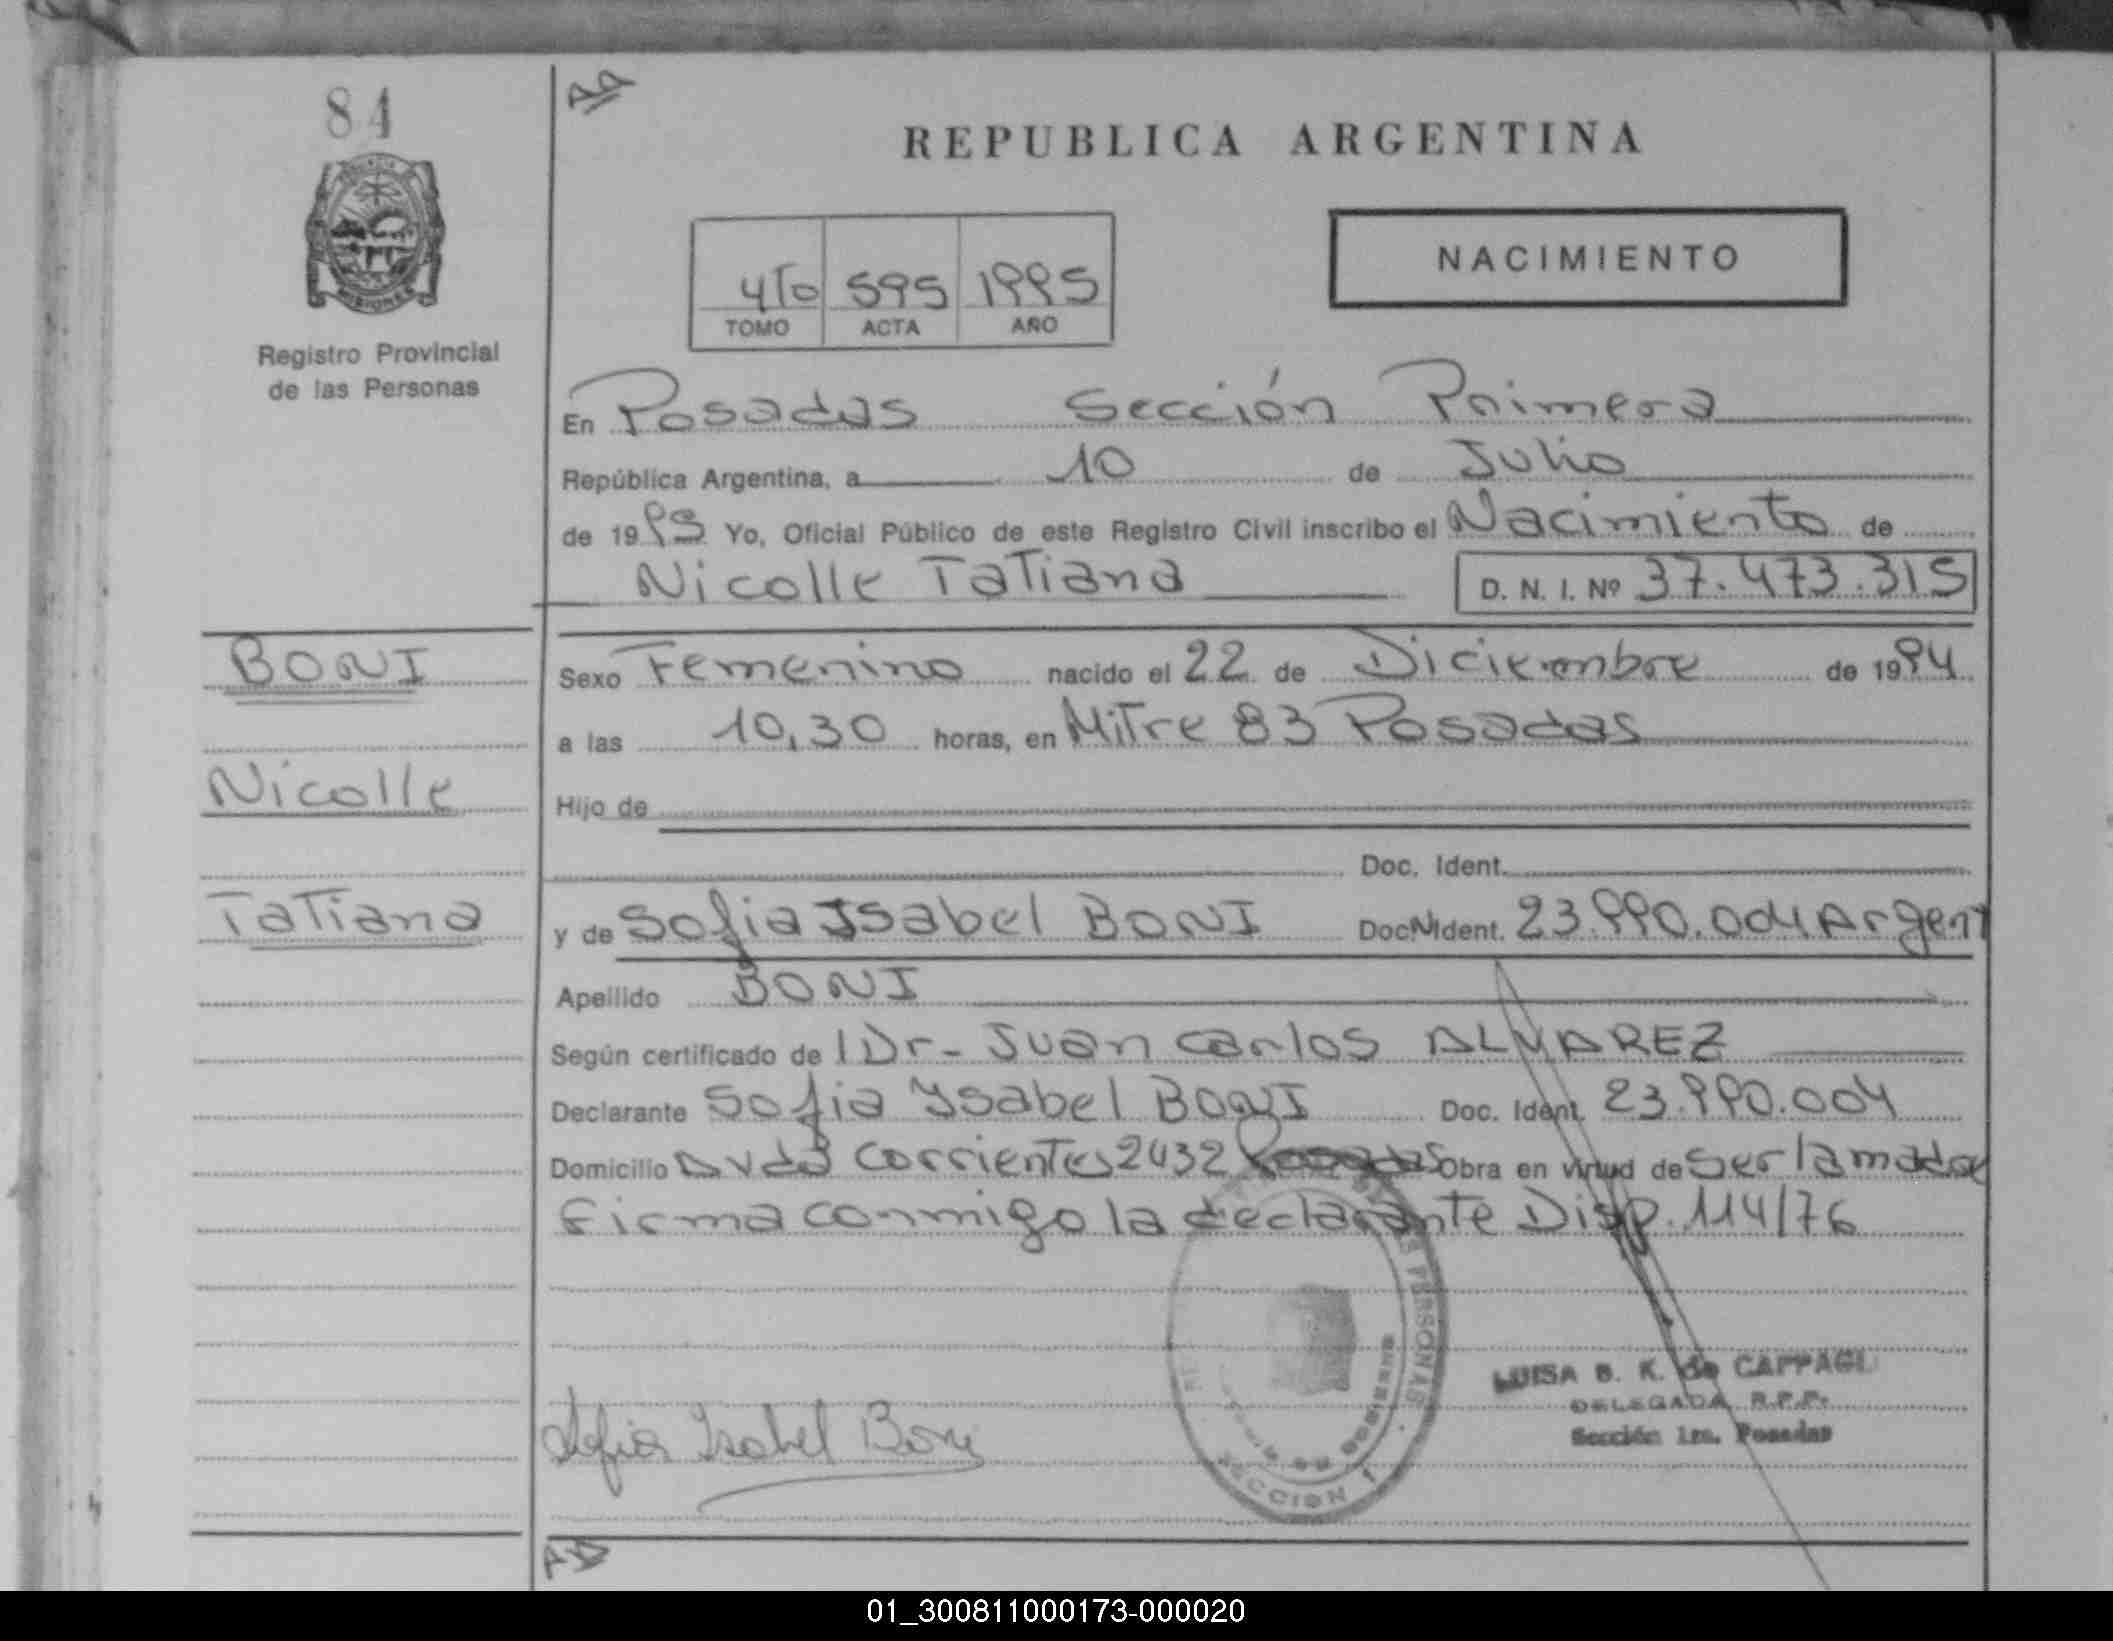 84
REPUBLICA ARGENTINA
NACIMIENTO
4to 595 1995
TOMO ACTA AÑO
MISIONES
Registro Provincial
de las Personas
En Posadas Sección Primera
República Argentina, a 10 de Julio
de 1995 Yo, Oficial Público de este Registro Civil inscribo el Nacimiento de
Nicolle Tatiana D. N. I. Nº 37.473.315
BONI
Nicolle
Tatiana
Sexo Femenino nacido el 22 de Diciembre de 1994
a las 10,30 horas, en Mitre 83 Posadas
Hijo de
Doc. Ident.
y de Sofia Isabel BONI Doc N Ident. 23.990.004 Argent
Apellido BONI
Según certificado de Dr. Juan Carlos ALVAREZ
Declarante Sofia Ysabel BONI Doc. Ident. 23.990.004
Domicilio Avda Corrientes 2432 Posadas Obra en virtud de ser la madre
firma conmigo la declarante Disp. 114/76
LUISA B. K. de CAPPAGLI
DELEGADA R.P.P.
Sección 1ra. Posadas
Sofia Isabel Boni
PERSONAS
SECCION 1
01_300811000173-000020